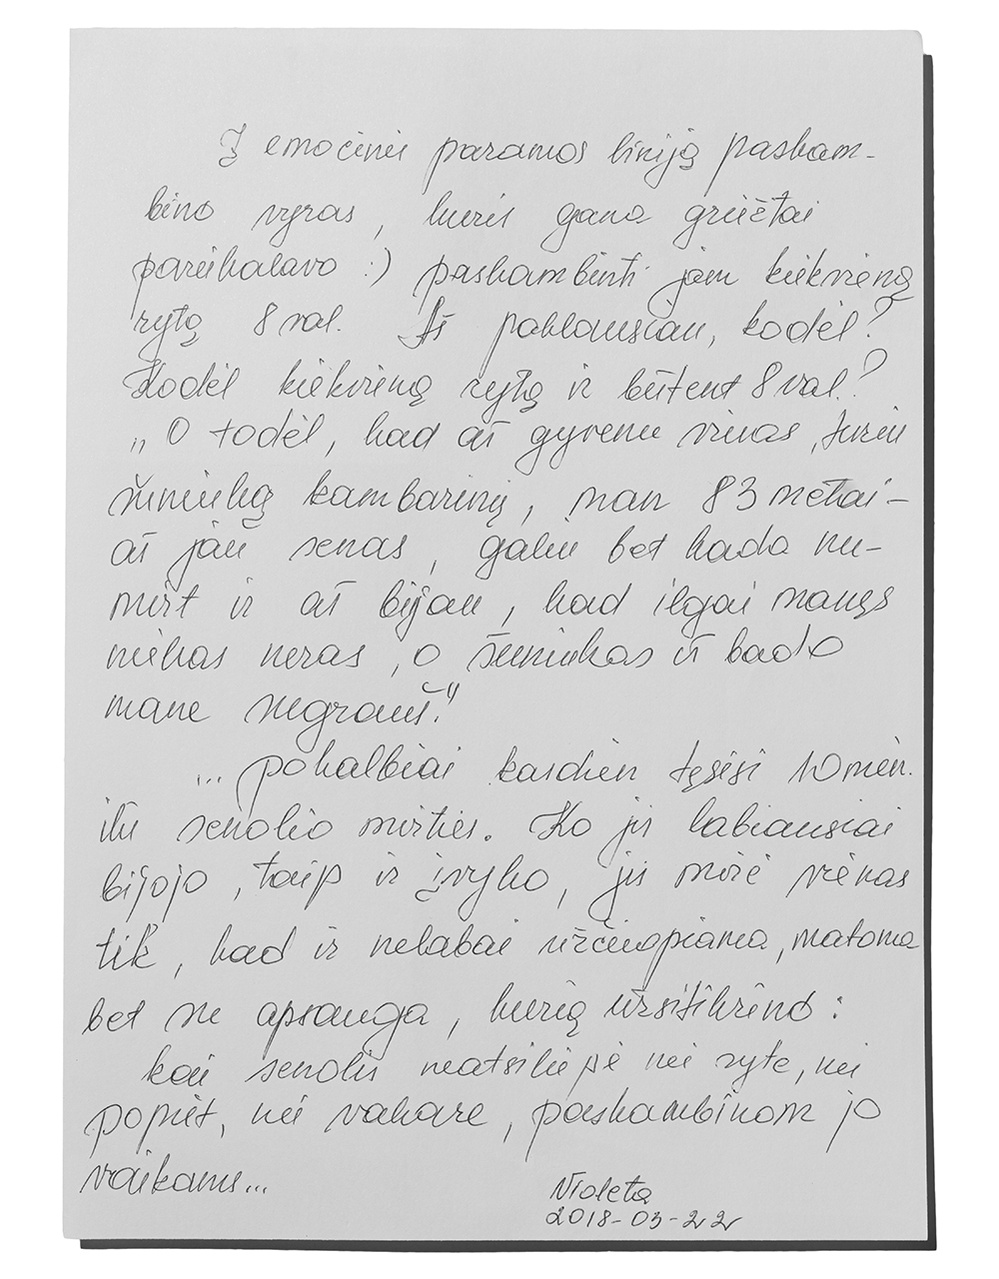 Į emocinės paramos liniją paskam-
bino vyras, kuris gana griežtai
pareikalavo :) paskambinti jam kiekvieną
rytą 8 val. Aš paklausiau, kodėl?
Kodėl kiekvieną rytą ir būtent 8 val.?
„O todėl, kad aš gyvenu vienas, turiu
šuniuką kambarinį, man 83 metai -
aš jau senas, galiu bet kada nu-
mirt ir aš bijau, kad ilgai manęs
niekas neras, o šuniukas iš bado
mane negrauš."
... pokalbiai kasdien tęsėsi 10 mėn.
iki senolio mirties. Ko jis labiausiai
bijojo, taip ir įvyko, jis mirė vienas
tik, kad ir nelabai užčiuopiama, matoma
bet ne apsauga, kurią užsitikrino:
kai senolis neatsiliepė nei ryte, nei
popiet, nei vakare, paskambinom jo
vaikams...
Violeta
2018-03-22